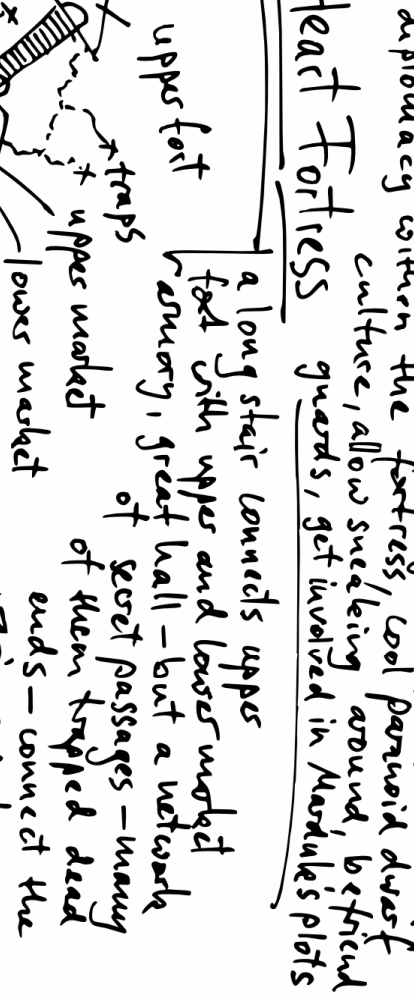 diplomacy within the fortress, cool paranoid dwarf
culture, allow sneaking around, befriend
guards, get involved in Marduk's plots
Heart Fortress
a long stair connects upper
fort with upper and lower market
armory, great hall – but a network
of secret passages – many
of them trapped dead
ends – connect the
upper fort
traps
upper market
lower market